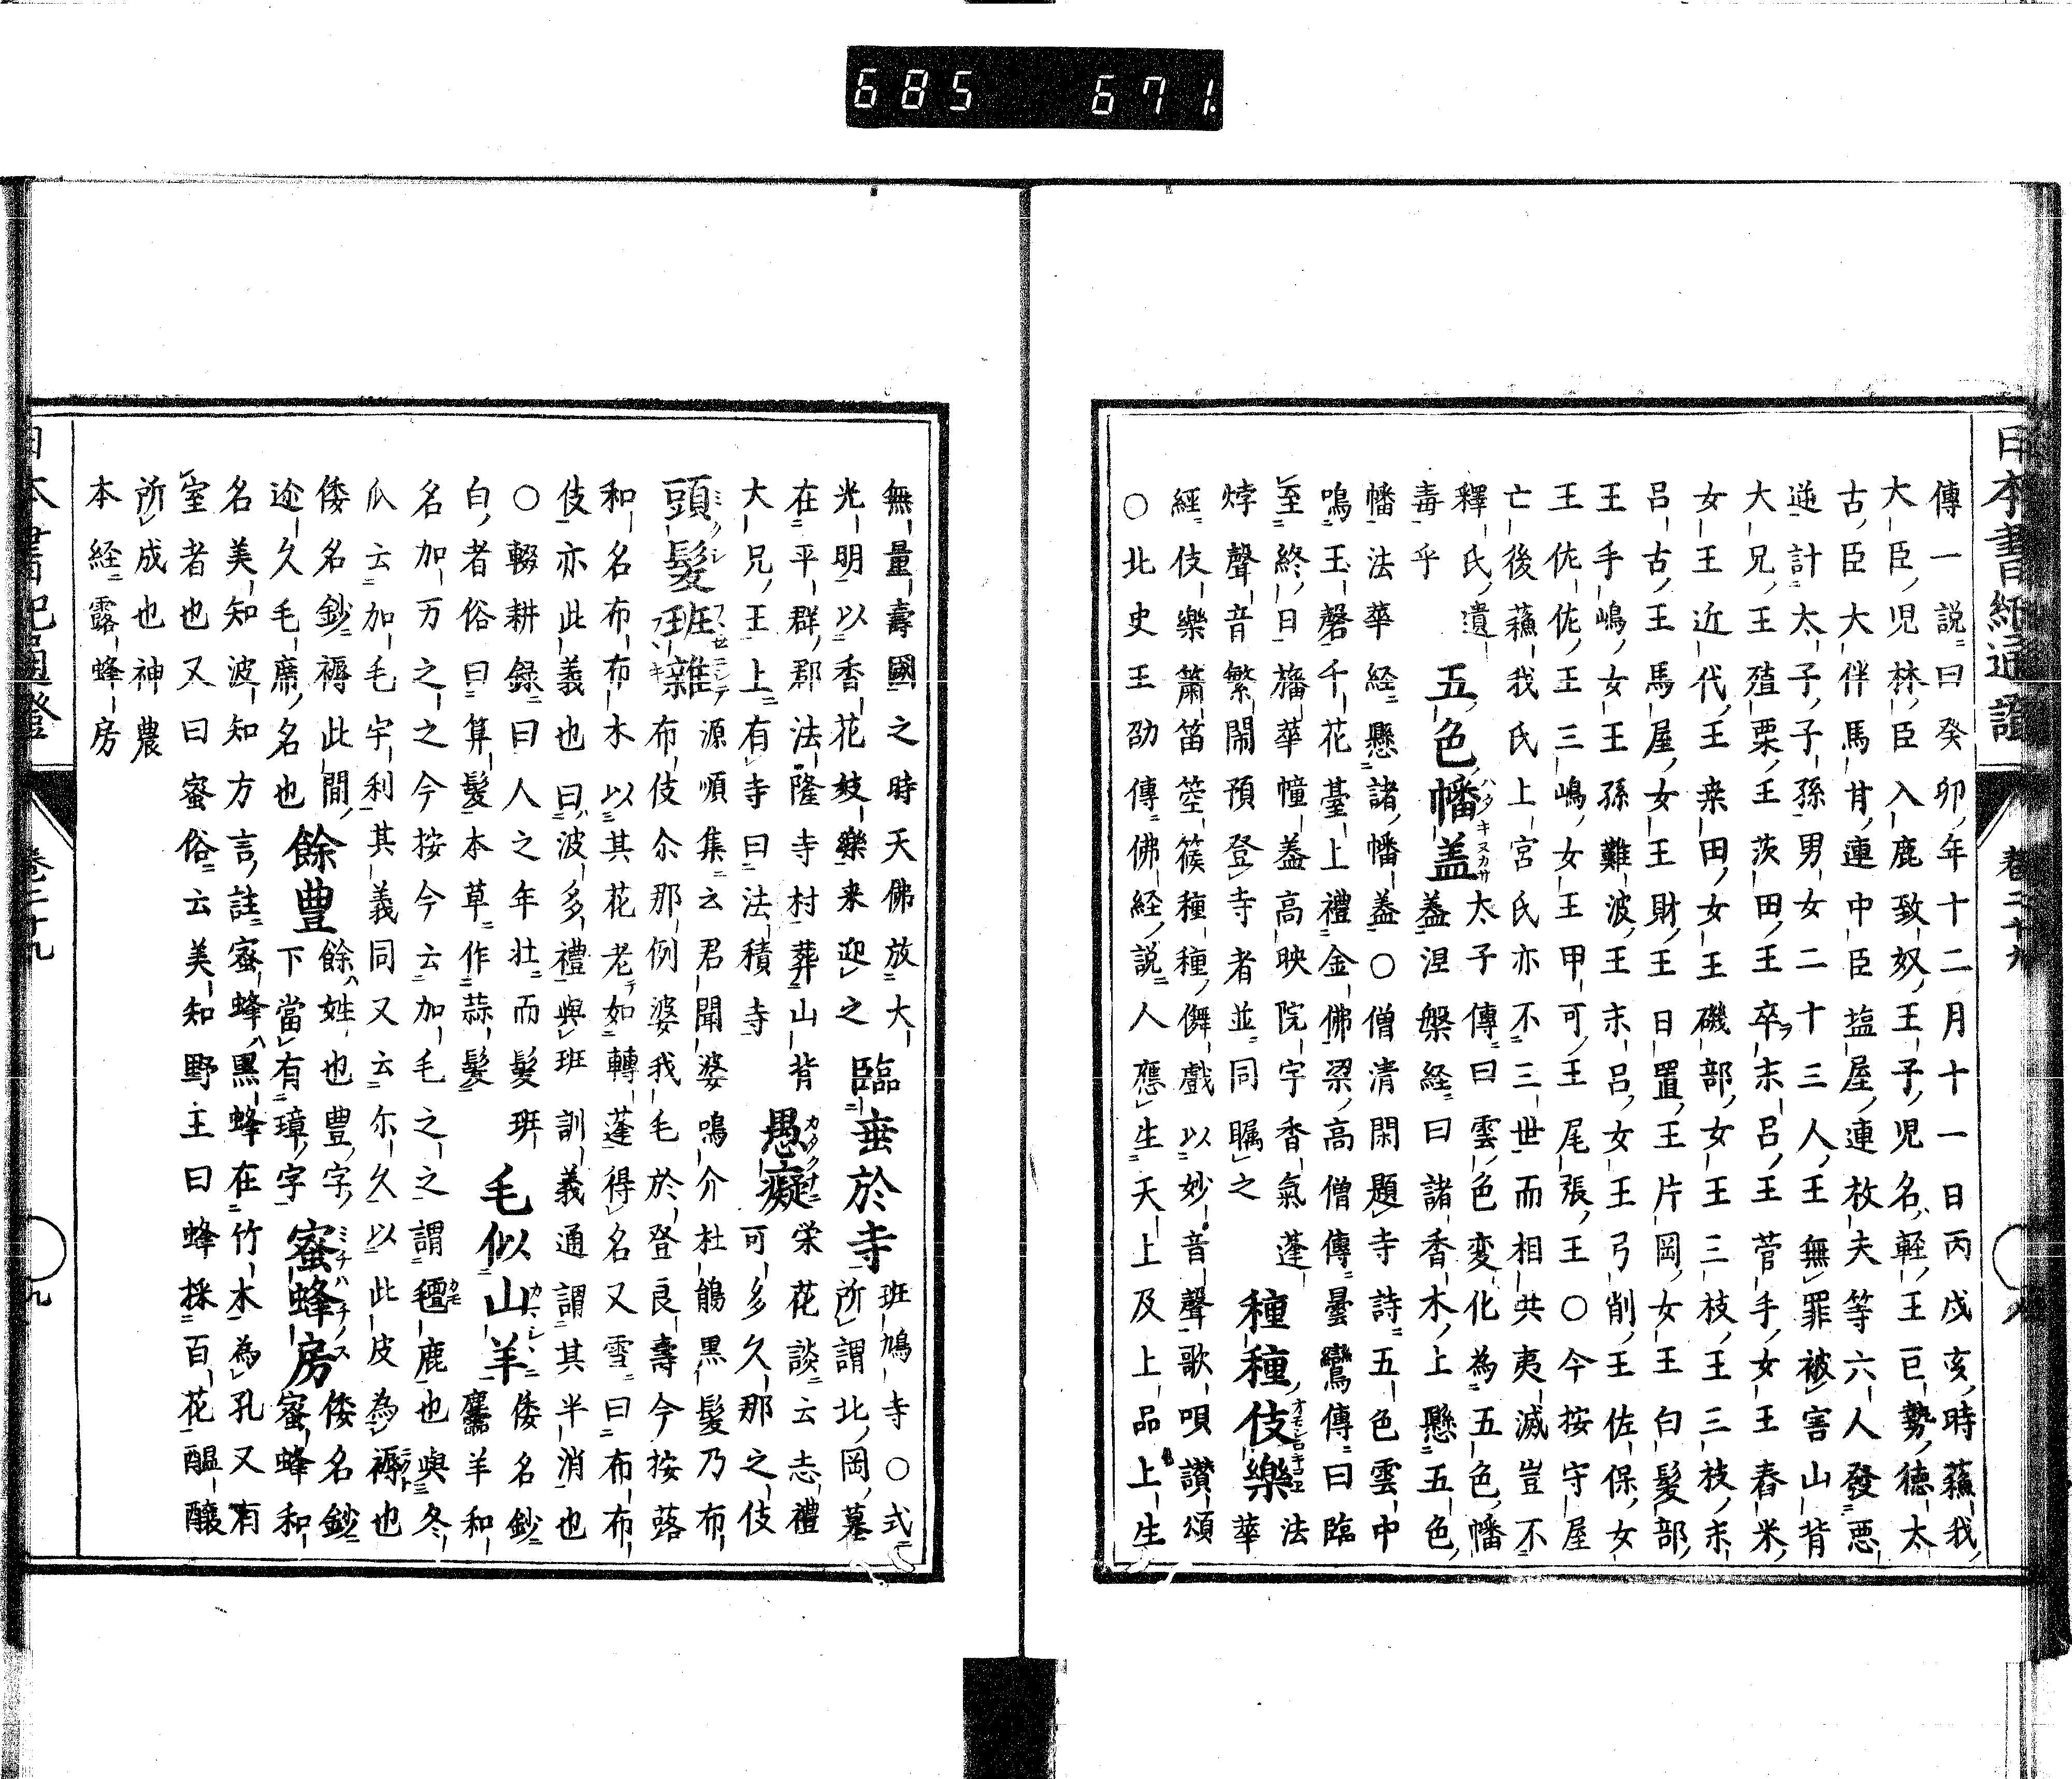 685 671
日本書紀通證 卷二十九 九
傳一說曰癸卯年十二月十一日丙戌亥時蘓我
大臣児林臣入鹿致奴王子児名軽王巨勢徳太
古臣大伴馬甘連中臣塩屋連枚夫等六人發悪
逆計太子子孫男女二十三人王無罪被害山背
大兄王殖栗王茨田王卒末呂王菅手女王舂米
女王近代王桒田女王磯部女王三枝王三枝末
呂古王馬屋女王財王日置王片岡女王白髮部
王手嶋女王孫難波王末呂女王弓削王佐保女
王佐佐王三嶋女王甲可王尾張王〇今按守屋
亡後蘓我氏上宮氏亦不三世而相共夷滅豈不
釋氏遺
毒乎
五色幡盖
太子傳曰雲色変化為五色幡
盖涅槃経曰諸香木上懸五色
幡法華経懸諸幡盖〇僧清閑題寺詩五色雲中
鳴玉磬千花䑓上禮金佛梁高僧傳曇鸞傳曰臨
至終日旛華幢盖高映院宇香氣蓬
㶿聲音繁閙預登寺者並同矚之
種種伎樂
法
華
經伎樂簫笛箜篌種種儛戯以妙音聲歌唄讃頌
〇北史王劭傳佛経説人應生天上及上品上生
無量壽國之時天佛放大
光明以香花妓樂来迎之
臨垂於寺
班鳩寺〇式
所謂北岡墓
在平群郡法隆寺村葬山背
大兄王上有寺曰法積寺
愚癡
栄花談云志禮
可多久那之伎
頭髮班雜
源順集云君聞婆鳴介杜鵑黒髮乃布
布伎尒那例婆我毛於登良壽今按蕗
和名布布木以其花老如轉蓬得名又雪曰布布
伎亦此義也曰波多禮與班訓義通謂其半消也
〇輟耕録曰人之年壮而髮班
白者俗曰算髮本草作蒜髮
毛似山羊
倭名鈔
麢羊和
名加万之之今按今云加毛之之謂氈鹿也與冬
瓜云加毛宇利其義同又云尓久以此皮為褥也
倭名鈔褥此間
迩久毛席名也
餘豊
餘姓也豊字
下當有璋字
蜜蜂房
倭名鈔
蜜蜂和
名美知波知方言註蜜蜂黒蜂在竹木為孔又有
室者也又曰蜜俗云美知野王曰蜂採百花醖釀
所成也神農
本経露蜂房
日本書紀通證 卷二十九 九